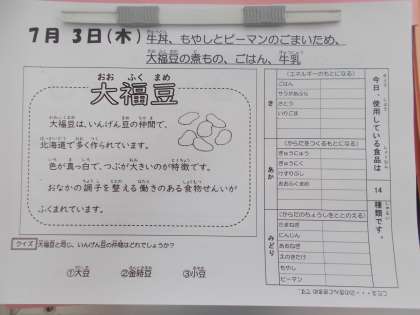 7月 3日(木) 牛丼、もやしとピーマンのごまいため、
大福豆の煮もの、ごはん、牛乳
おお ふく まめ
大福豆
大福豆は、いんげん豆の仲間で、
北海道で多く作られています。
色が真っ白で、つぶが大きいのが特徴です。
おなかの調子を整える働きのある食物せんいが
ふくまれています。
クイズ 大福豆と同じ、いんげん豆の仲間はどれでしょうか?
①大豆 ②金時豆 ③小豆
今日、使用している食品は
14
種類です。
き
(エネルギーのもとになる)
ごはん
サラダあぶら
さとう
いりごま
あか
(からだをつくるもとになる)
ぎゅうにゅう
ぎゅうにく
おおふくまめ
みどり
(からだのちょうしをととのえる)
たまねぎ
にんじん
えのきたけ
もやし
ピーマン